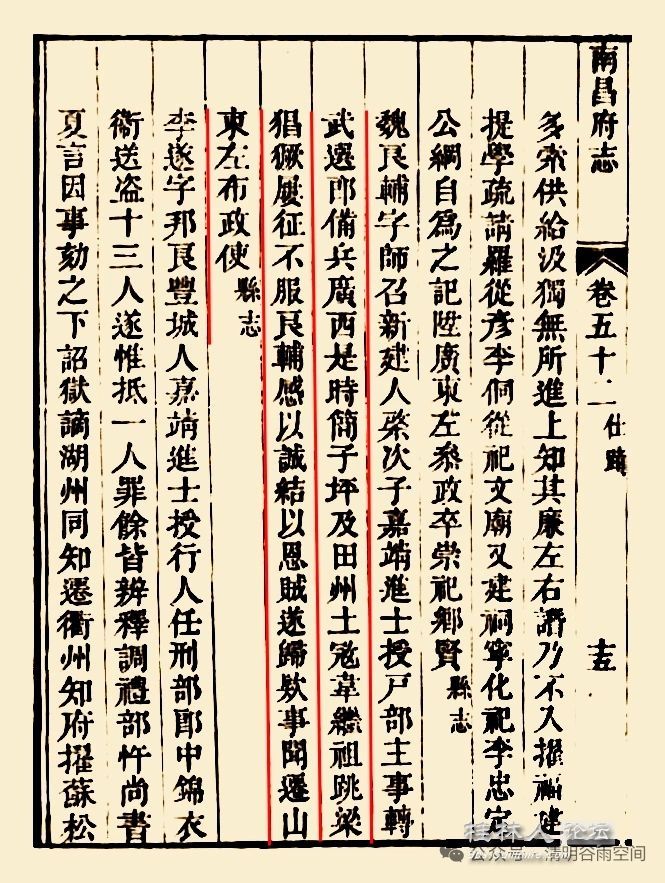 南昌府志
卷五十二 仕蹟
十五
多索供給汲獨無所進上知其廉左右譖乃不入擢福建
提學疏請羅從彥李侗從祀文廟又建祠寧化祀李忠定
公綱自爲之記陞廣東左叅政卒崇祀鄉賢縣志
魏良輔字師召新建人榮次子嘉靖進士授戸部主事轉
武選郎備兵廣西是時簡子坪及田州土冦韋繼祖跳梁
猖獗屢征不服良輔感以誠結以恩賊遂歸欵事聞遷山
東左布政使縣志
李遂字邦良豐城人嘉靖進士授行人任刑部郎中錦衣
衞送盗十三人遂惟抵一人罪餘皆辨釋調禮部忤尚書
夏言因事劾之下詔獄謫湖州同知遷衢州知府擢蘇松
桂林人论坛
公众号 · 清明谷雨空间